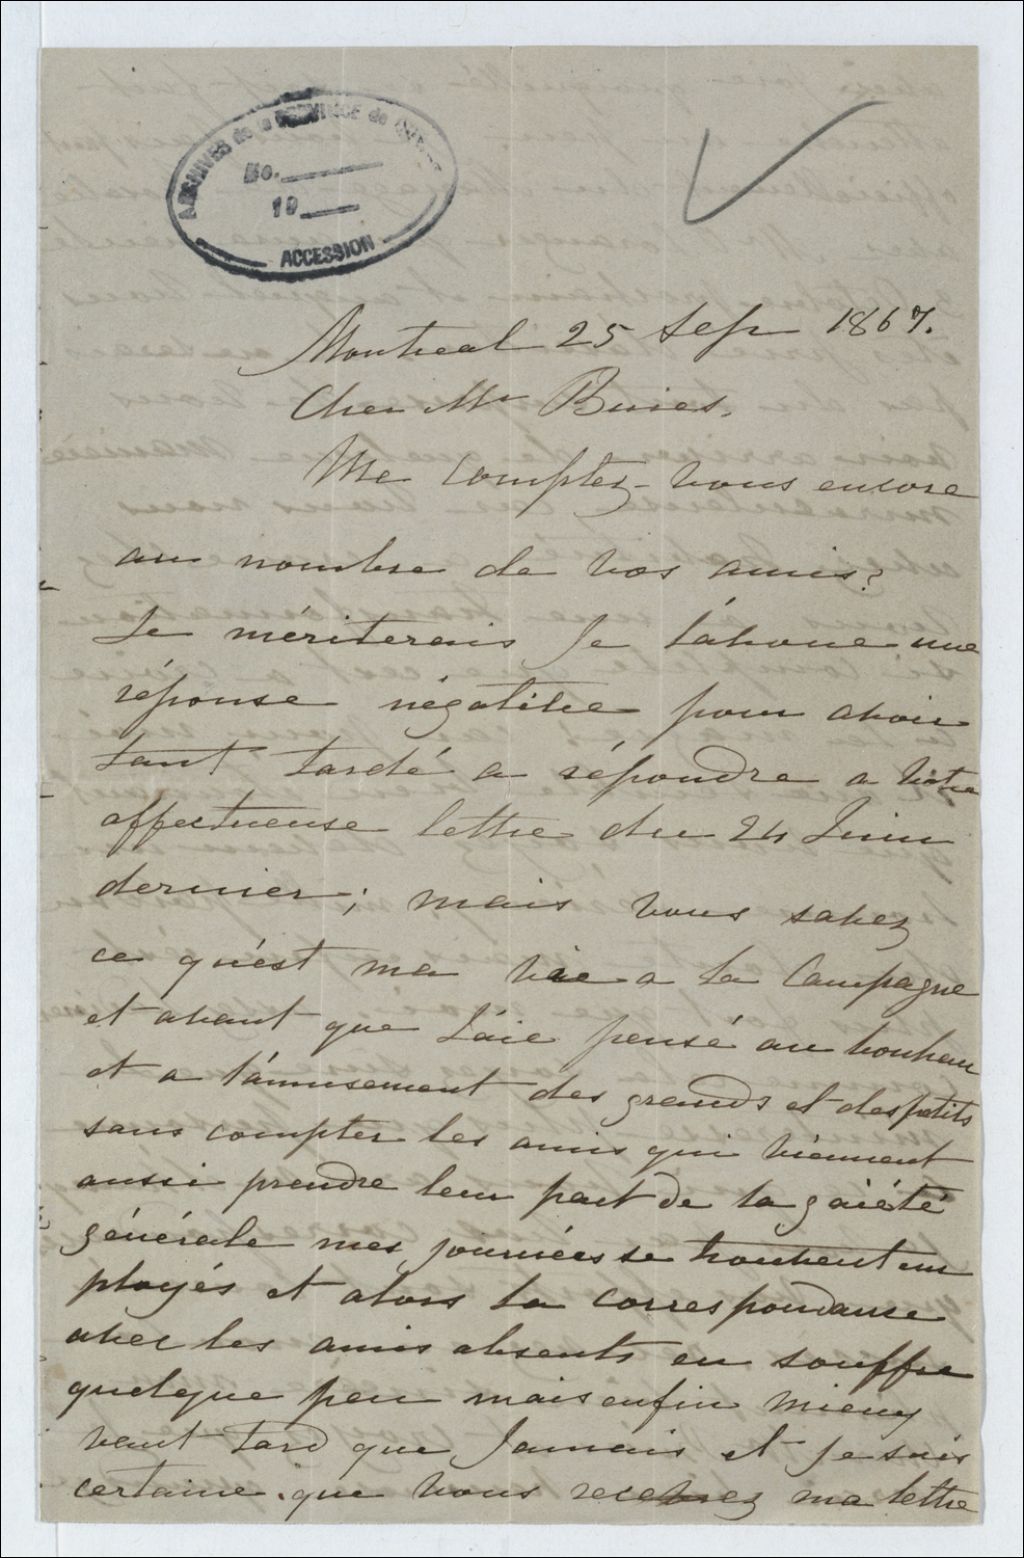 ARCHIVES de la PROVINCE de QUÉBEC
No.
19
ACCESSION
Montreal 25 Sep 1867.
Cher Mr Buies.
Me comptez-vous encore
au nombre de vos amis?
Je mériterais Je l'avoue une
réponse négative pour avoir
tant tardé a répondre a votre
affectueuse lettre du 24 Juin
dernier; mais vous savez
ce qu'est ma vie a la Campagne
et avant que J'aie pensé au bonheur
et a l'amusement des grands et des petits
sans compter les amis qui viennent
aussi prendre leur part de la gaiété
générale mes journées se trouvent em
ployés et alors la correspondance
avec les amis absents en souffre
quelque peu mais enfin mieux
vaut tard que Jamais et je suis
certaine que vous recevrez ma lettre